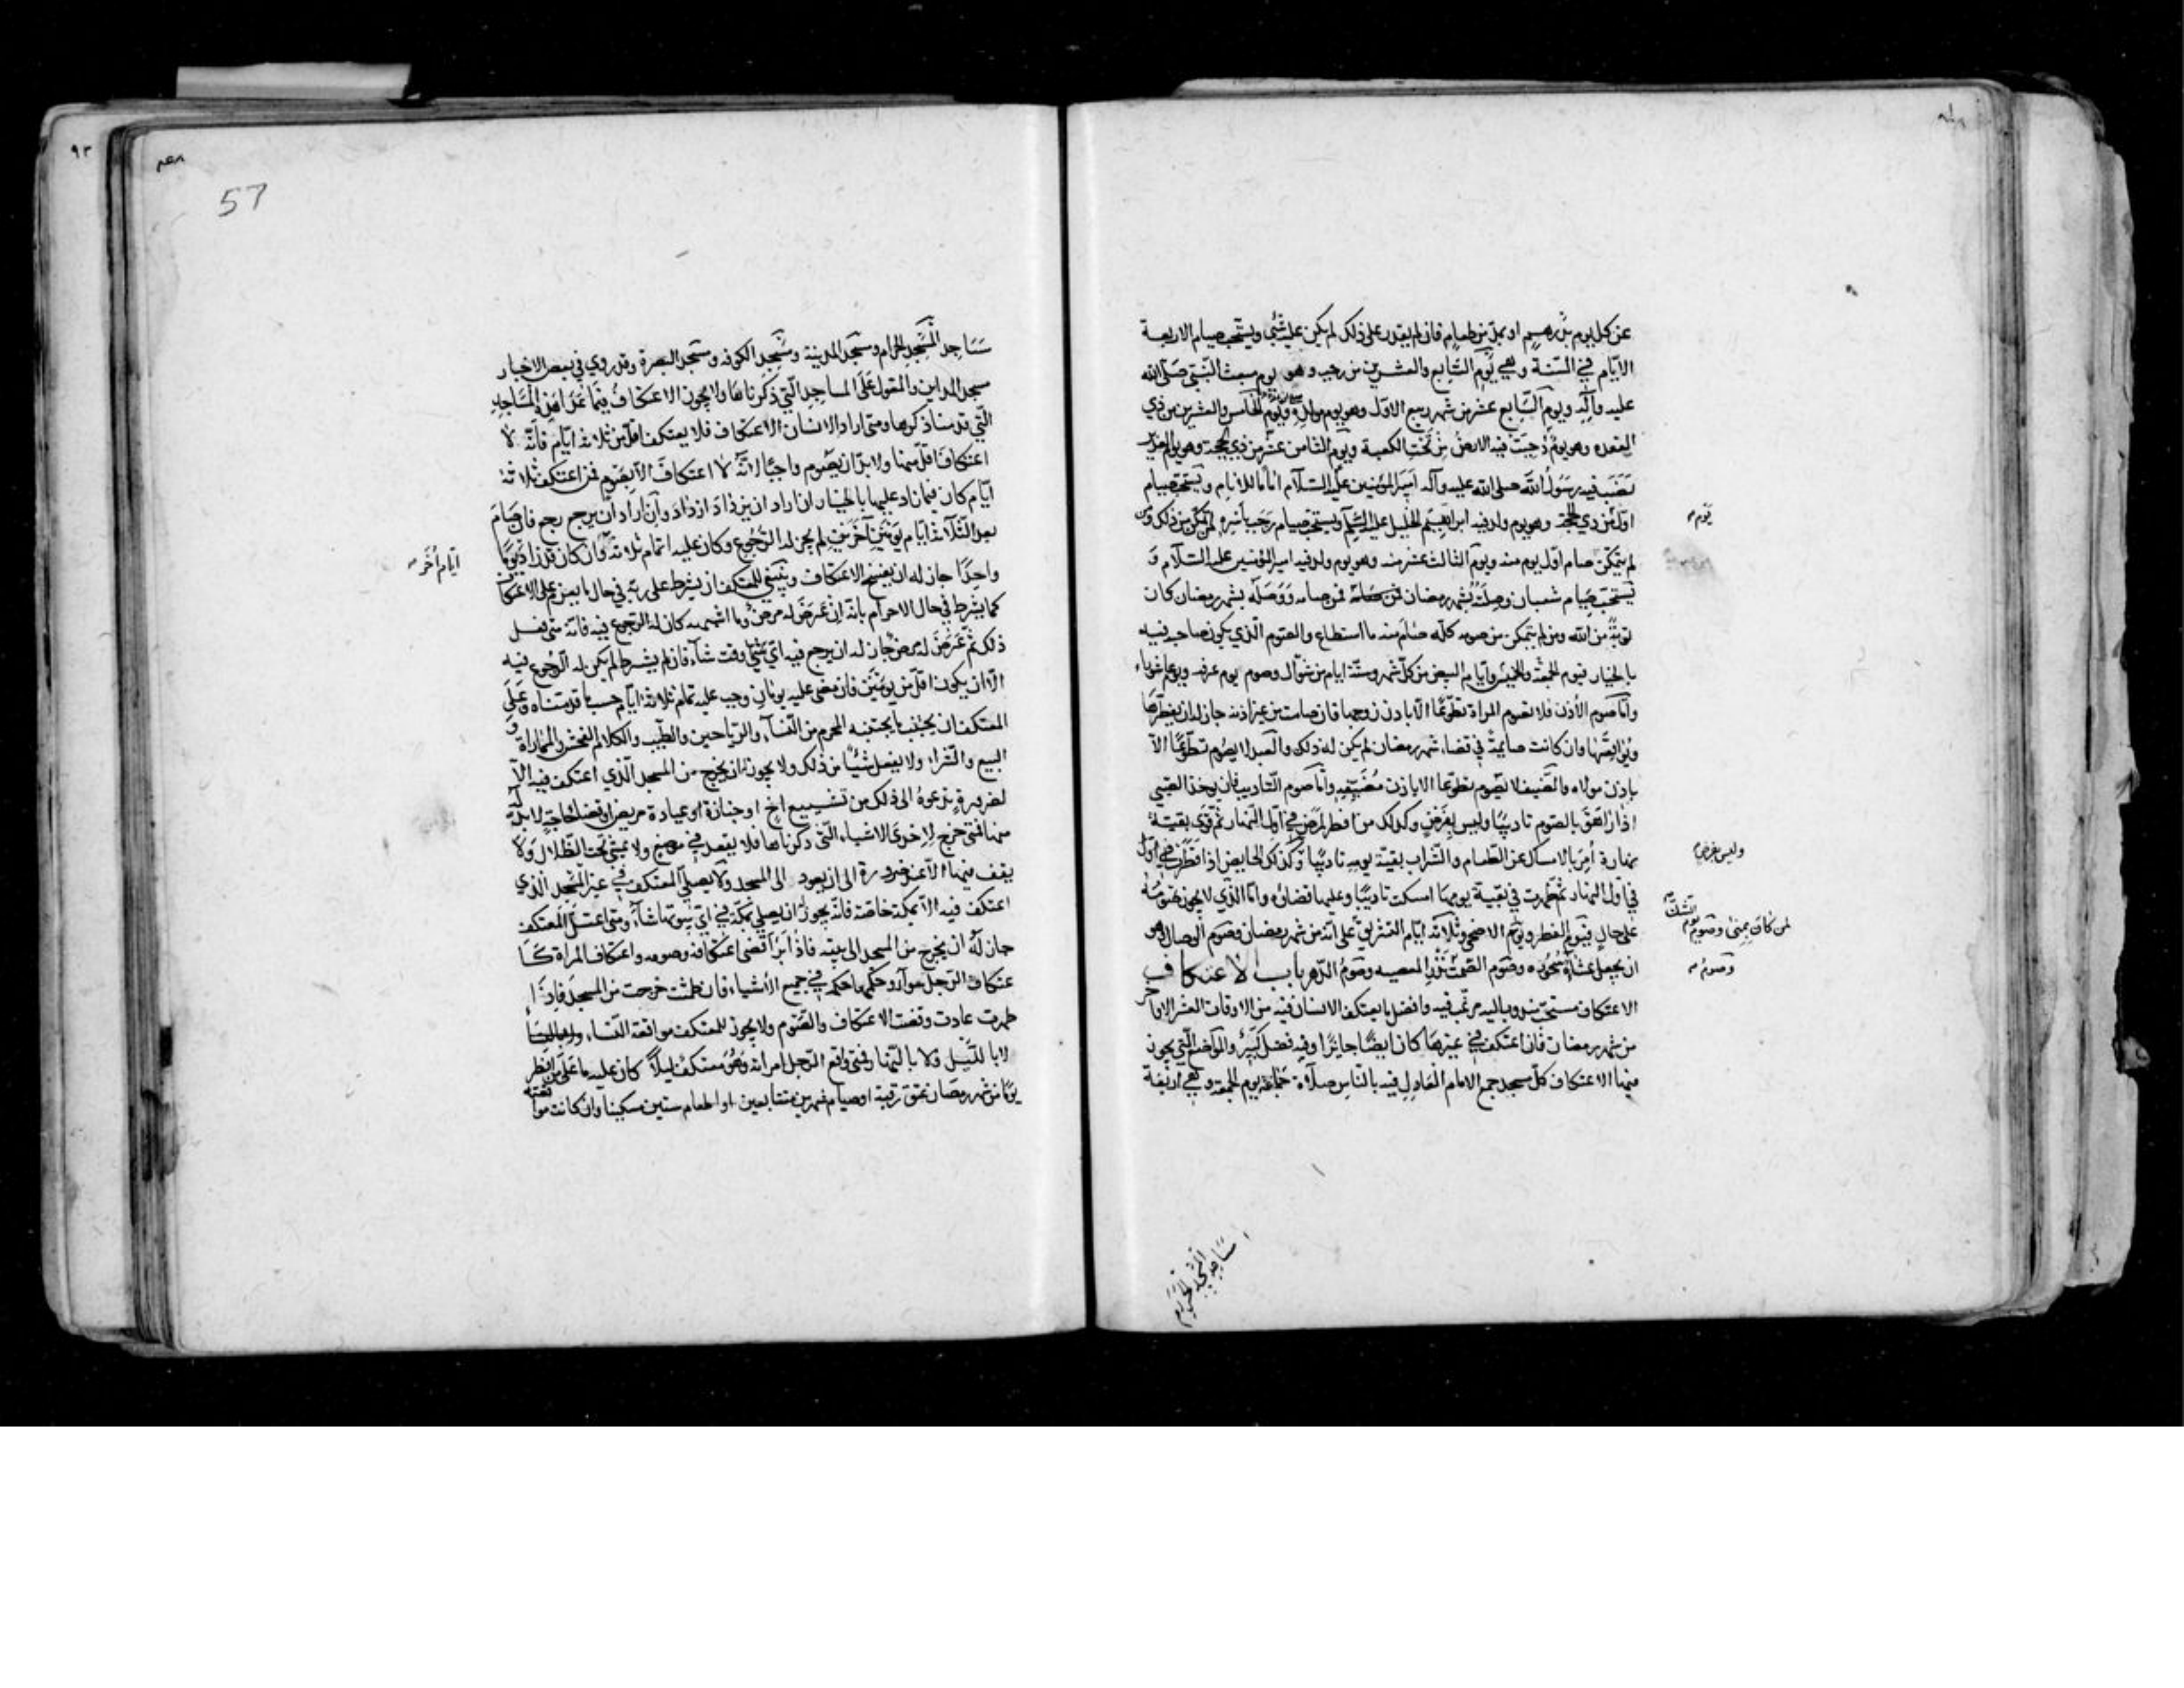 عن كل يوم بدرهم او بمد من طعام فان لم يقدر على ذلك لم يكن عليه شئ ويستحب صيام الاربعة
الايام في السنة وهي يوم السابع والعشرين من رجب وهو يوم مبعث النبي صلى الله
عليه وآله ويوم السابع عشر من شهر ربيع الاول وهو يوم مولده ويوم الخامس والعشرين من ذي
القعده وهو يوم دحيت فيه الارض من تحت الكعبة ويوم الثامن عشر من ذي الحجة وهو يوم الغدير
نصب فيه رسول الله صلى الله عليه وآله امير المؤمنين عليه السلام اماما للانام ويستحب صيام
اول من ذي الحجة وهو يوم ولد فيه ابراهيم الخليل عليه السلم ويستحب صيام رجب باسره لمن تمكن من ذلك ومن
يوم
لم يتمكن صام اول يوم منه ويوم الثالث عشر منه وهو يوم ولد فيه امير المؤمنين عليه السلام و
يستحب صيام شعبان وصلته بشهر رمضان فمن صامه ووصله بشهر رمضان كان
توبة من الله ومن لم يتمكن من صومه كله صام منه ما استطاع والصوم الذي يكون صاحبه فيه
بالخيار فيوم الجمعة والخميس وايام البيض من كل شهر وستة ايام من شوال وصوم يوم عرفه ويوم عاشوراء
واما صوم الأذن فلا تصوم المراة تطوعا الا باذن زوجها فان صامت من غير اذنه جاز له ان يفطرها
ويواقعها وان كانت صايمة في قضاء شهر رمضان لم يكن له ذلك والعبد لا يصوم تطوعا الا
باذن مولاه والضيف لا يصوم تطوعا الا باذن مضيفه واما صوم التاديب فان يوخذ الصبي
اذا راهق بالصوم تاديبا وليس بفرض وكذلك من افطر لمرض في اول النهار ثم قوى بقية
نهاره أمر بالامساك عن الطعام والشراب بقية يومه تاديبا وكذلك الحايض اذا افطرت في اول
وليس بفرض
في اول النهار ثم طهرت في بقية يومها امسكت تاديبا وعليها قضاؤه واما الذي لا يجوز صومه
على حال فيوم الفطر ويوم الاضحى وثلاثه ايام التشريق على انه من شهر رمضان وصوم الوصال وهو
لمن كان بمنى وصوم يوم الشك
ان يجعل عشاه سحوره وصوم الصمت نذر المعصيه وصوم الدهر باب الاعتكاف
وصوم
الاعتكاف مستحب مندوب اليه مرغب فيه وافضل ما يعتكف الانسان فيه من الاوقات العشر الاواخر
من شهر رمضان فان اعتكف في غيرها كان ايضا جايزا وفيه فضل كبير والمواضع التي يجوز
فيها الاعتكاف كل مسجد جمع الامام العادل فيه بالناس صلاة جماعة يوم الجمعة وهي أربعة
مساجد المسجد الحرام
57
مساجد المسجد الحرام ومسجد المدينة ومسجد الكوفه ومسجد البصرة وقد روي في بعض الاخبار
مسجد المداين والمقول على المساجد التي ذكرناها ولا يجوز الاعتكاف فيما عدا هذه المساجد
التي قدمنا ذكرها ومتى اراد الانسان الاعتكاف فلا يعتكف اقل من ثلاثة ايام فانه لا
اعتكاف اقل منها ولا بد ان يصوم واجبا لانه لا اعتكاف الا بصوم فمن اعتكف ثلاثة
ايام كان فيما زاد عليها بالخيار ان اراد ان يزداد ازداد وان اراد ان يرجع رجع فان صام
بعد الثلاثة ايام يومين آخرين لم يجز له الرجوع وكان عليه اتمام ثلاثة وان كان قد زاد يوما
ايام أخر
واحدا جاز له ان يفسخ الاعتكاف وينبغي للمعتكف ان يشرط على ربه في حال ما يعزم على الاعتكاف
كما يشرط في حال الاحرام بانه ان عرض له مرض وما اشبهه كان له الرجوع فيه فانه متى فعل
ذلك ثم عرض له مرض جاز له ان يرجع فيه اي وقت شاء فان لم يشرط لم يكن له الرجوع فيه
الا ان يكون اقل من يومين فان مضى عليه يومان وجب عليه تمام ثلاثة ايام حسب ما قدمناه وعلى
المعتكف ان يجتنب ما يجتنبه المحرم من النساء والرياحين والطيب والكلام الفحش والمماراة و
البيع والشراء ولا يفعل شيئا من ذلك ولا يجوز ان يخرج من المسجد الذي اعتكف فيه الا
لضرورة تدعوه الى ذلك من تشييع اخ او جنازة او عيادة مريض او قضاء حاجة لا بد له
منها فمتى خرج لاحدى الاشياء التي ذكرناها فلا يقعد في موضع ولا يمشي تحت الظلال ولا
يقف فيها الا عند ضرورة الى ان يعود الى المسجد ولا يصلي المعتكف في غير المسجد الذي
اعتكف فيه الا بمكة خاصة فانه يجوز ان يصلي بمكة في اي بيوتها شاء ومتى اعتل المعتكف
جاز له ان يخرج من المسجد الى بيته فاذا برأ قضى اعتكافه وصومه واعتكاف المراة كا
عتكاف الرجل سواء وحكمها حكمه في جميع الأشياء فان طمثت خرجت من المسجد فاذا
طهرت عادت وقضت الاعتكاف والصوم ولا يجوز للمعتكف مواقعة النساء
لا بالليل ولا بالنهار فمتى واقع الرجل امراته وهو معتكف ليلا كان عليه ما على من افطر
يوما من شهر رمضان عتق رقبة او صيام شهرين متتابعين او اطعام ستين مسكينا وان كانت مواقعته